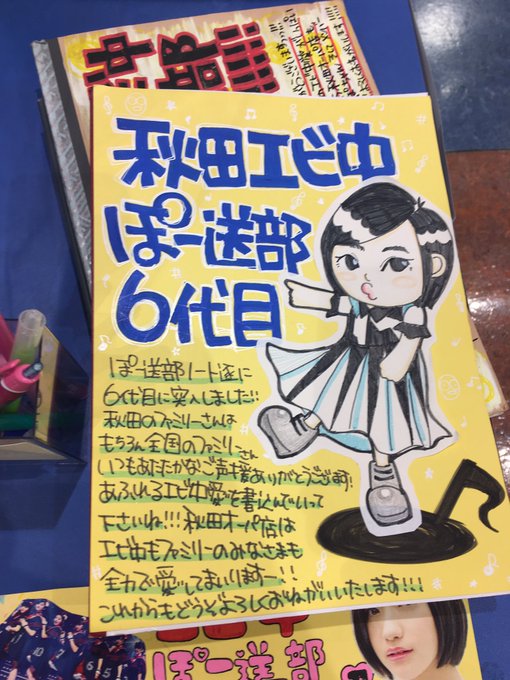 沖
部!!!!
秋田エビ中
ぽー送部
6代目
ぽー送部ノート遂に
6代目に突入しました!!
秋田のファミリーさんは
もちろん全国のファミリーさん
いつもあたたかなご声援ありがとうございます!
あふれるエビ中愛を書込んでいって
下さいね!!!秋田オーパ店は
エビ中もファミリーのみなさまも
全力で愛してまいりますー!!
これからもどうぞよろしくおねがいいたします!!!
中
ぽー送部